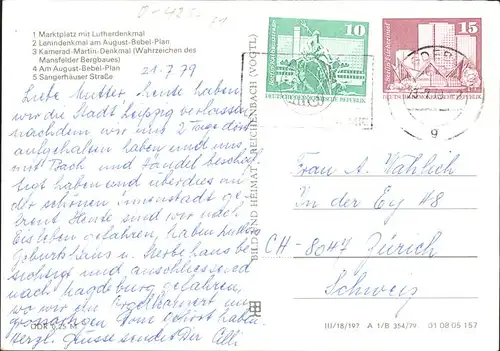 0-425
1 Marktplatz mit Lutherdenkmal
2 Lenindenkmal am August-Bebel-Plan
3 Kamerad-Martin-Denkmal (Wahrzeichen des
Mansfelder Bergbaues)
4 Am August-Bebel-Plan
5 Sangerhäuser Straße
21.7.79
Liebe Mutter, heute haben
wir die Stadt Leipzig verlassen
nachdem wir uns 2 Tage dort
aufgehalten haben und uns
mit Bach und Händel beschäf
tigt haben und überdies an
der schönen Innenstadt ge
freut Heute sind wir nach
Eisleben gefahren, haben Luthers
Geburtshaus u. Sterbehaus be
sichtigt und anschliessend
nach Magdeburg gefahren,
wo wir ein Orgelkonzert im
grossartigen Dom gehört haben
Herzl. Grüsse sendet Dir Elli
DDR 0,25 M
BILD UND HEIMAT REICHENBACH (VOGTL)
10
DEUTSCHE DEMOKRATISCHE REPUBLIK
15
DEUTSCHE DEMOKRATISCHE REPUBLIK
9
Frau A. Wahlich
In der Ey 48
CH-8047 Zürich
Schweiz
III/18/197 A 1/B 354/79 01 08 05 157